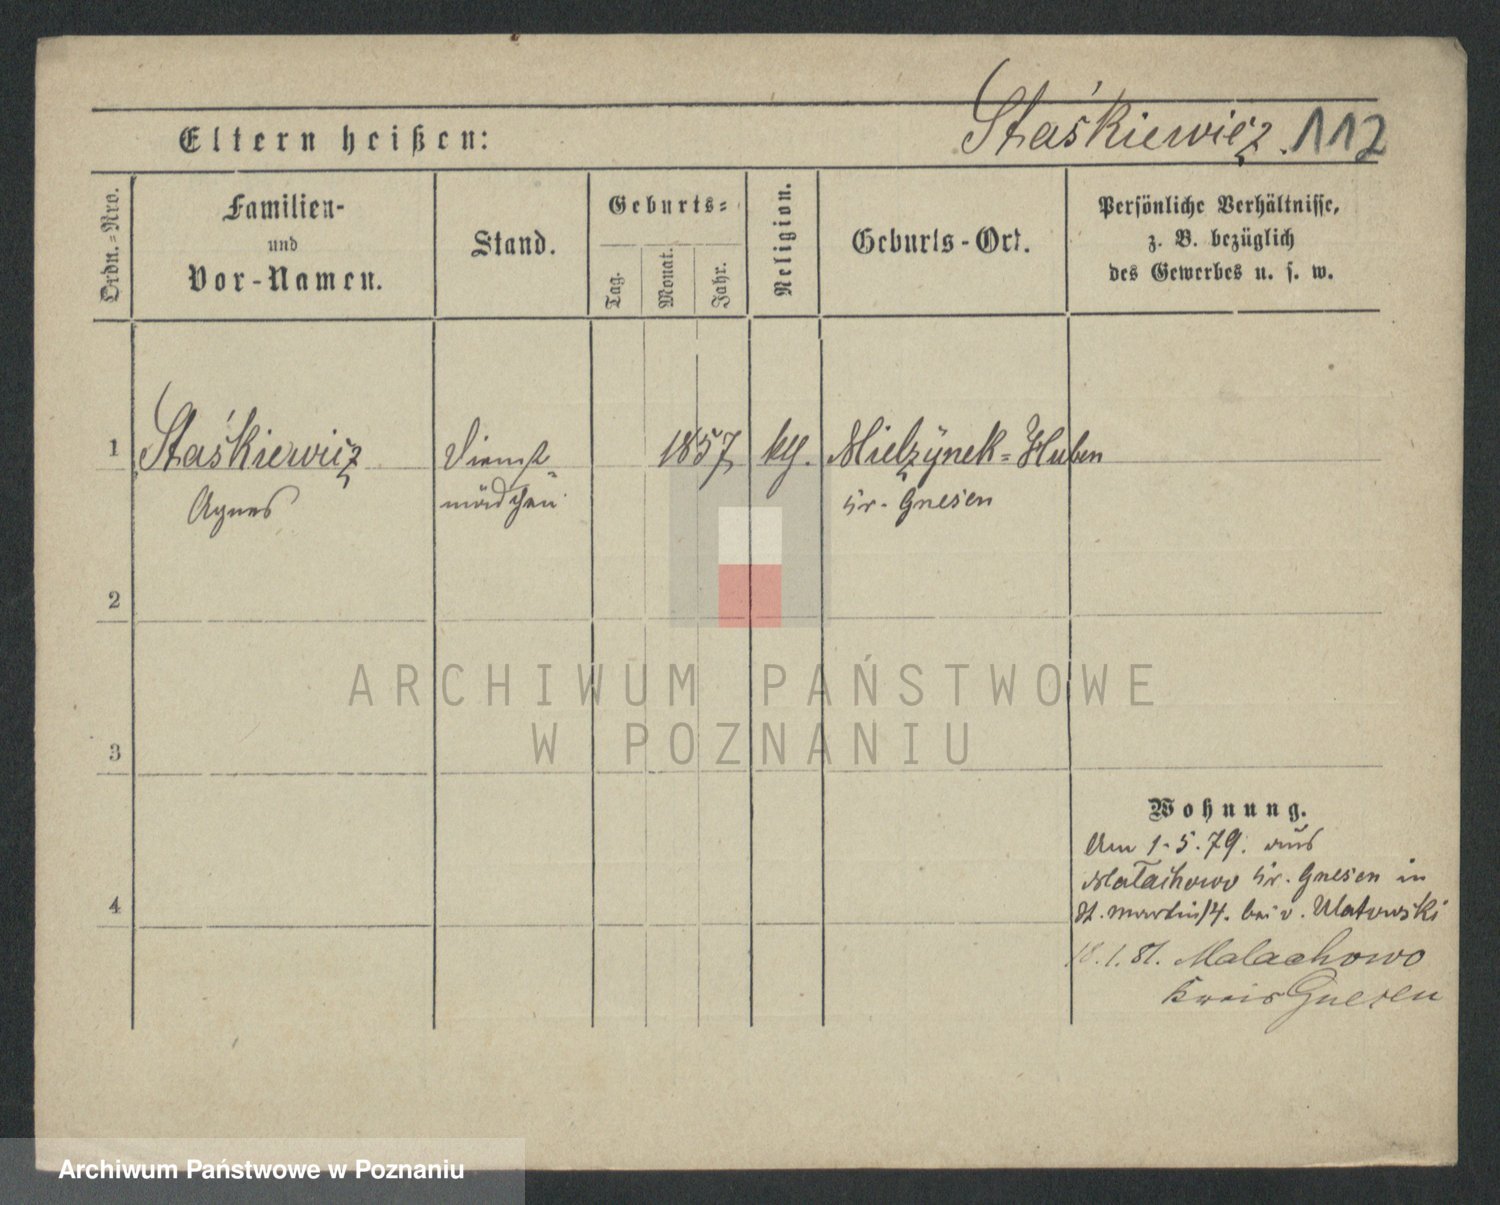 Staśkiewicz. 112
Eltern heißen:
Ordn.=Nro.
Familien-
und
Vor-Namen.
Stand.
Geburts=
Tag.
Monat.
Jahr.
Religion.
Geburts-Ort.
Persönliche Verhältnisse,
z. B. bezüglich
des Gewerbes u. s. w.
1 Staśkiewicz Dienst= 1857 Mielzynek=Huben
Agnes mädchen Kr. Gnesen
2
3
4
Wohnung.
Am 1.5.79. aus
Malachowo Kr. Gnesen in
St. Martin 4. bei v. Ulatowski
18.1.81. Malachowo
Kreis Gnesen
ARCHIWUM PAŃSTWOWE
W POZNANIU
Archiwum Państwowe w Poznaniu